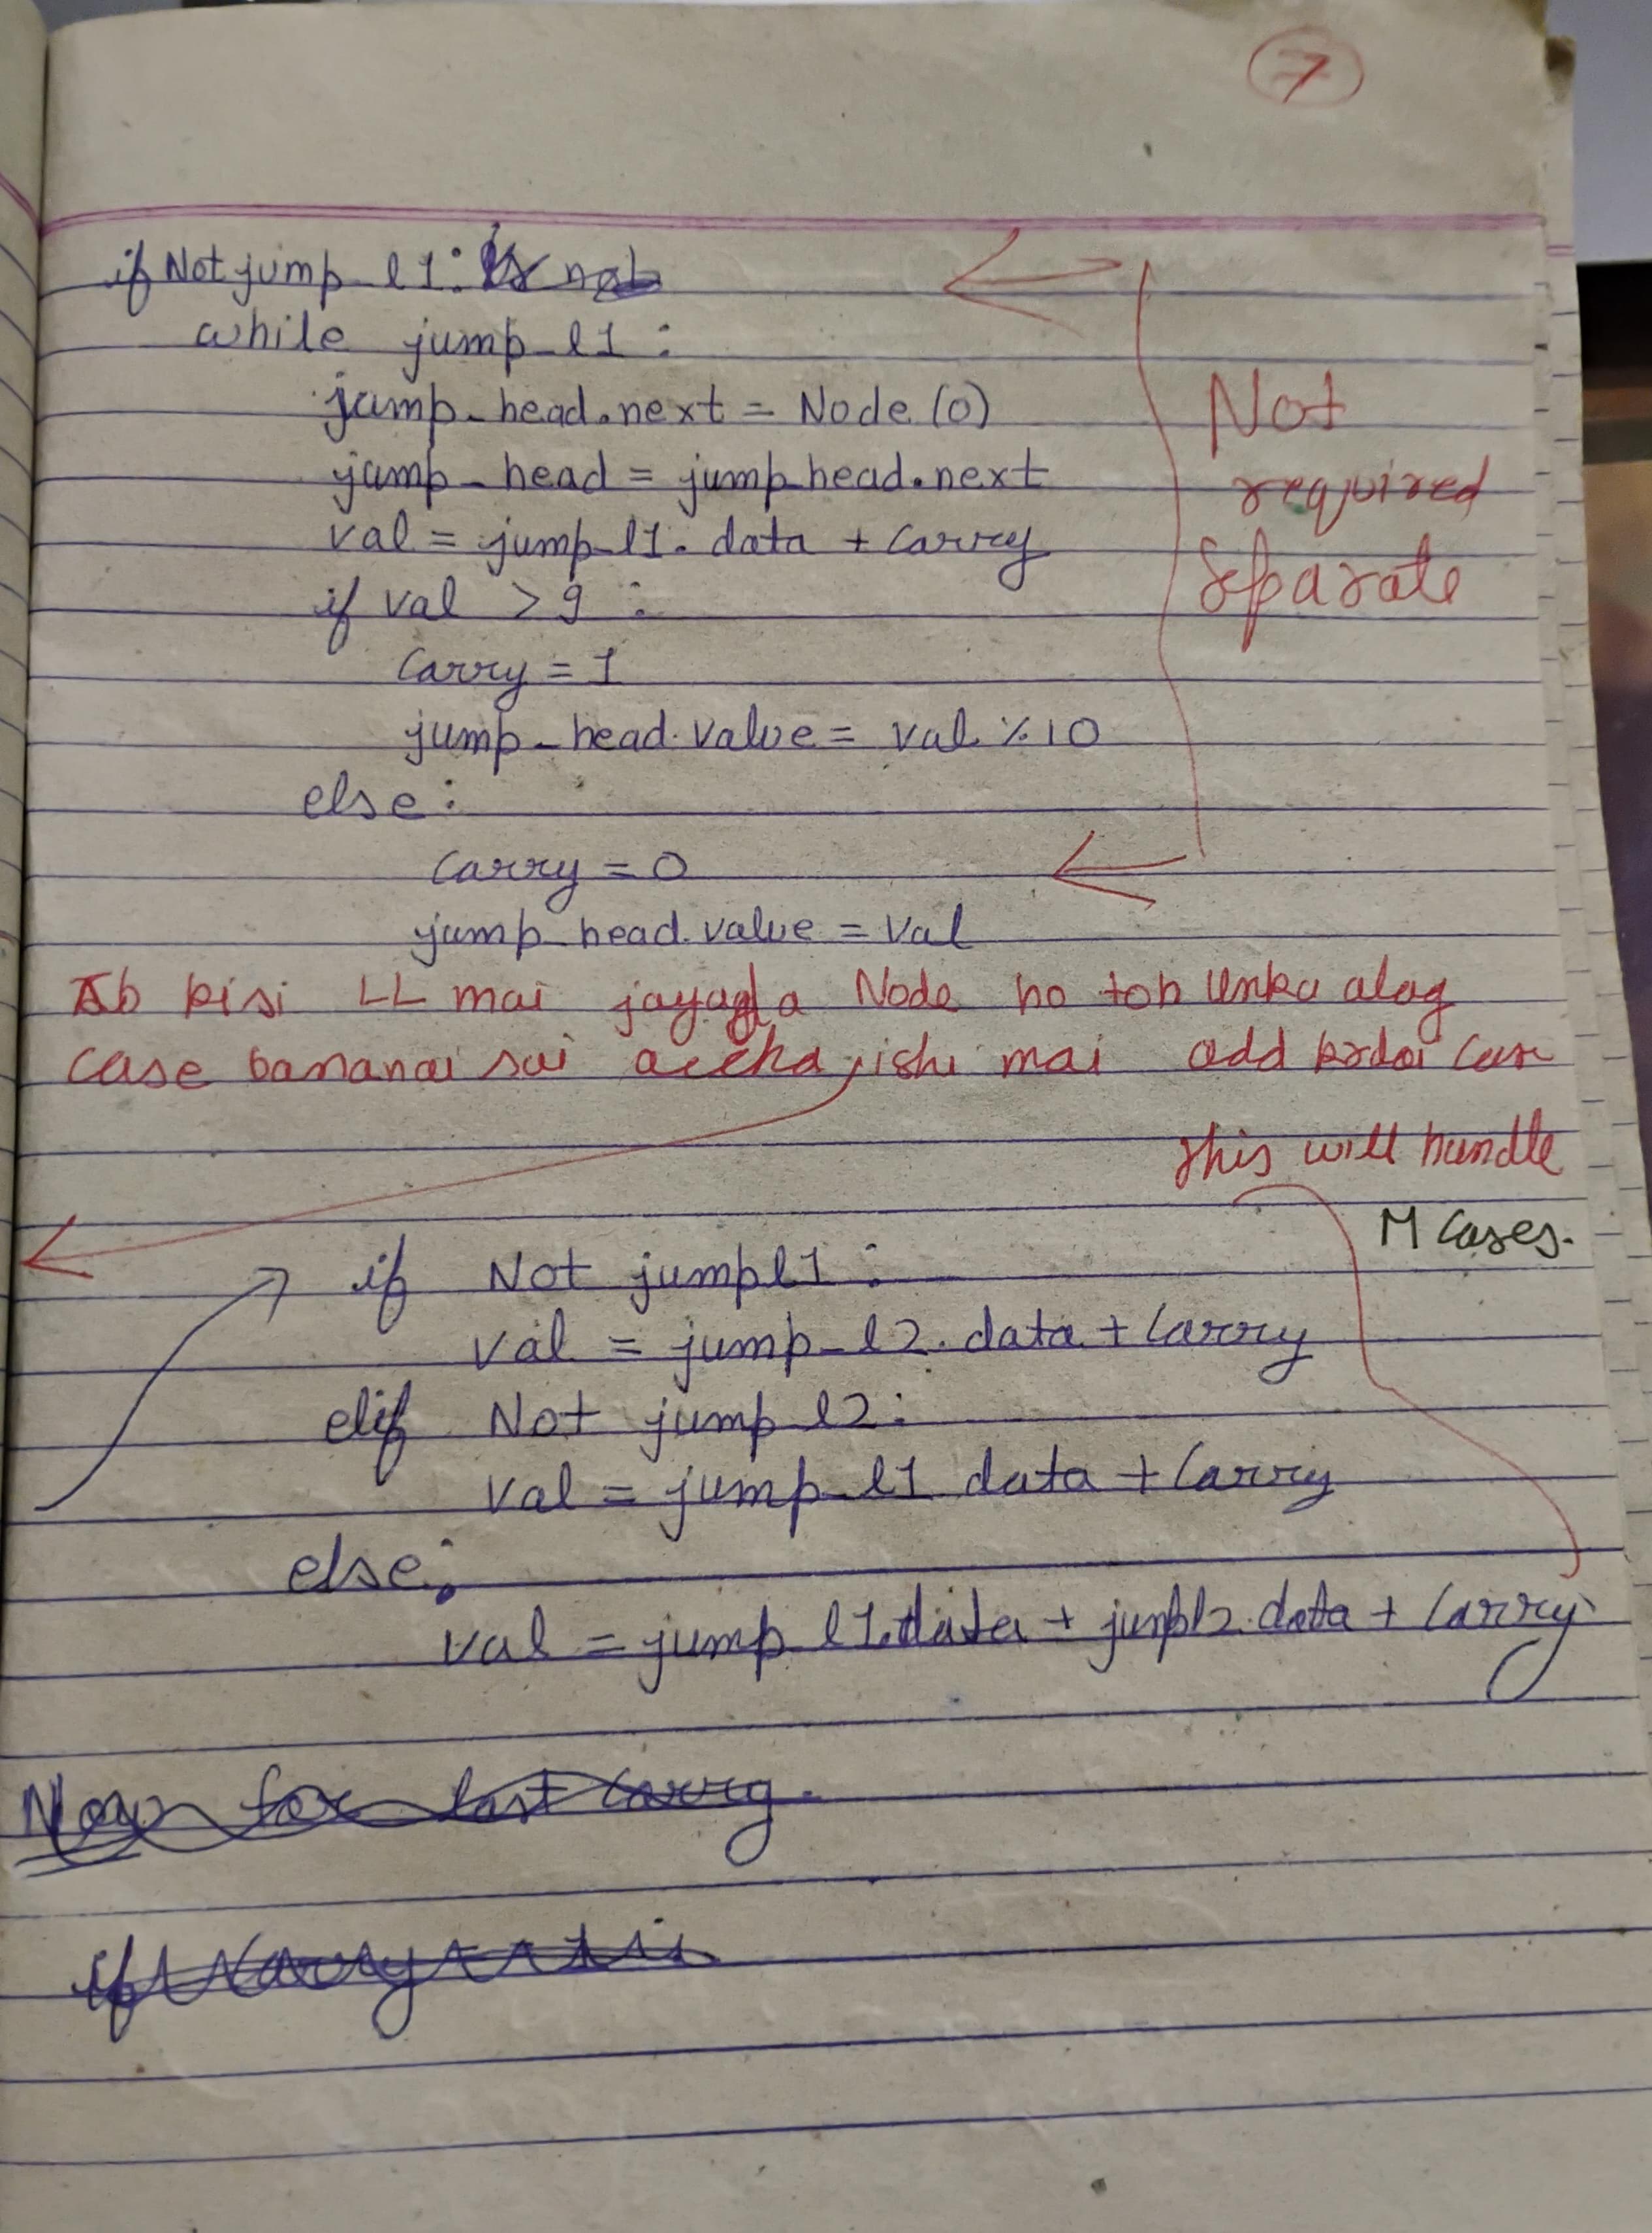 7
if Not jump_l1:
while jump_l1 :
jump_head.next = Node (0)
jump_head = jump head.next
val = jump_l1. data + carry
if val > 9 :
carry = 1
jump_head.value = val % 10
else :
carry = 0
jump_head.value = val
Not
required
Separate
Ab kisi LL mai Node ho toh unka alag
case bananai sai accha, ishi mai add krdai case
this will handle
M cases.
if Not jumpl1 :
val = jump_l2. data + carry
elif Not jump_l2:
val = jump_l1 data + carry
else:
val = jump_l1.data + jumpl2.data + carry
Now for last carry.